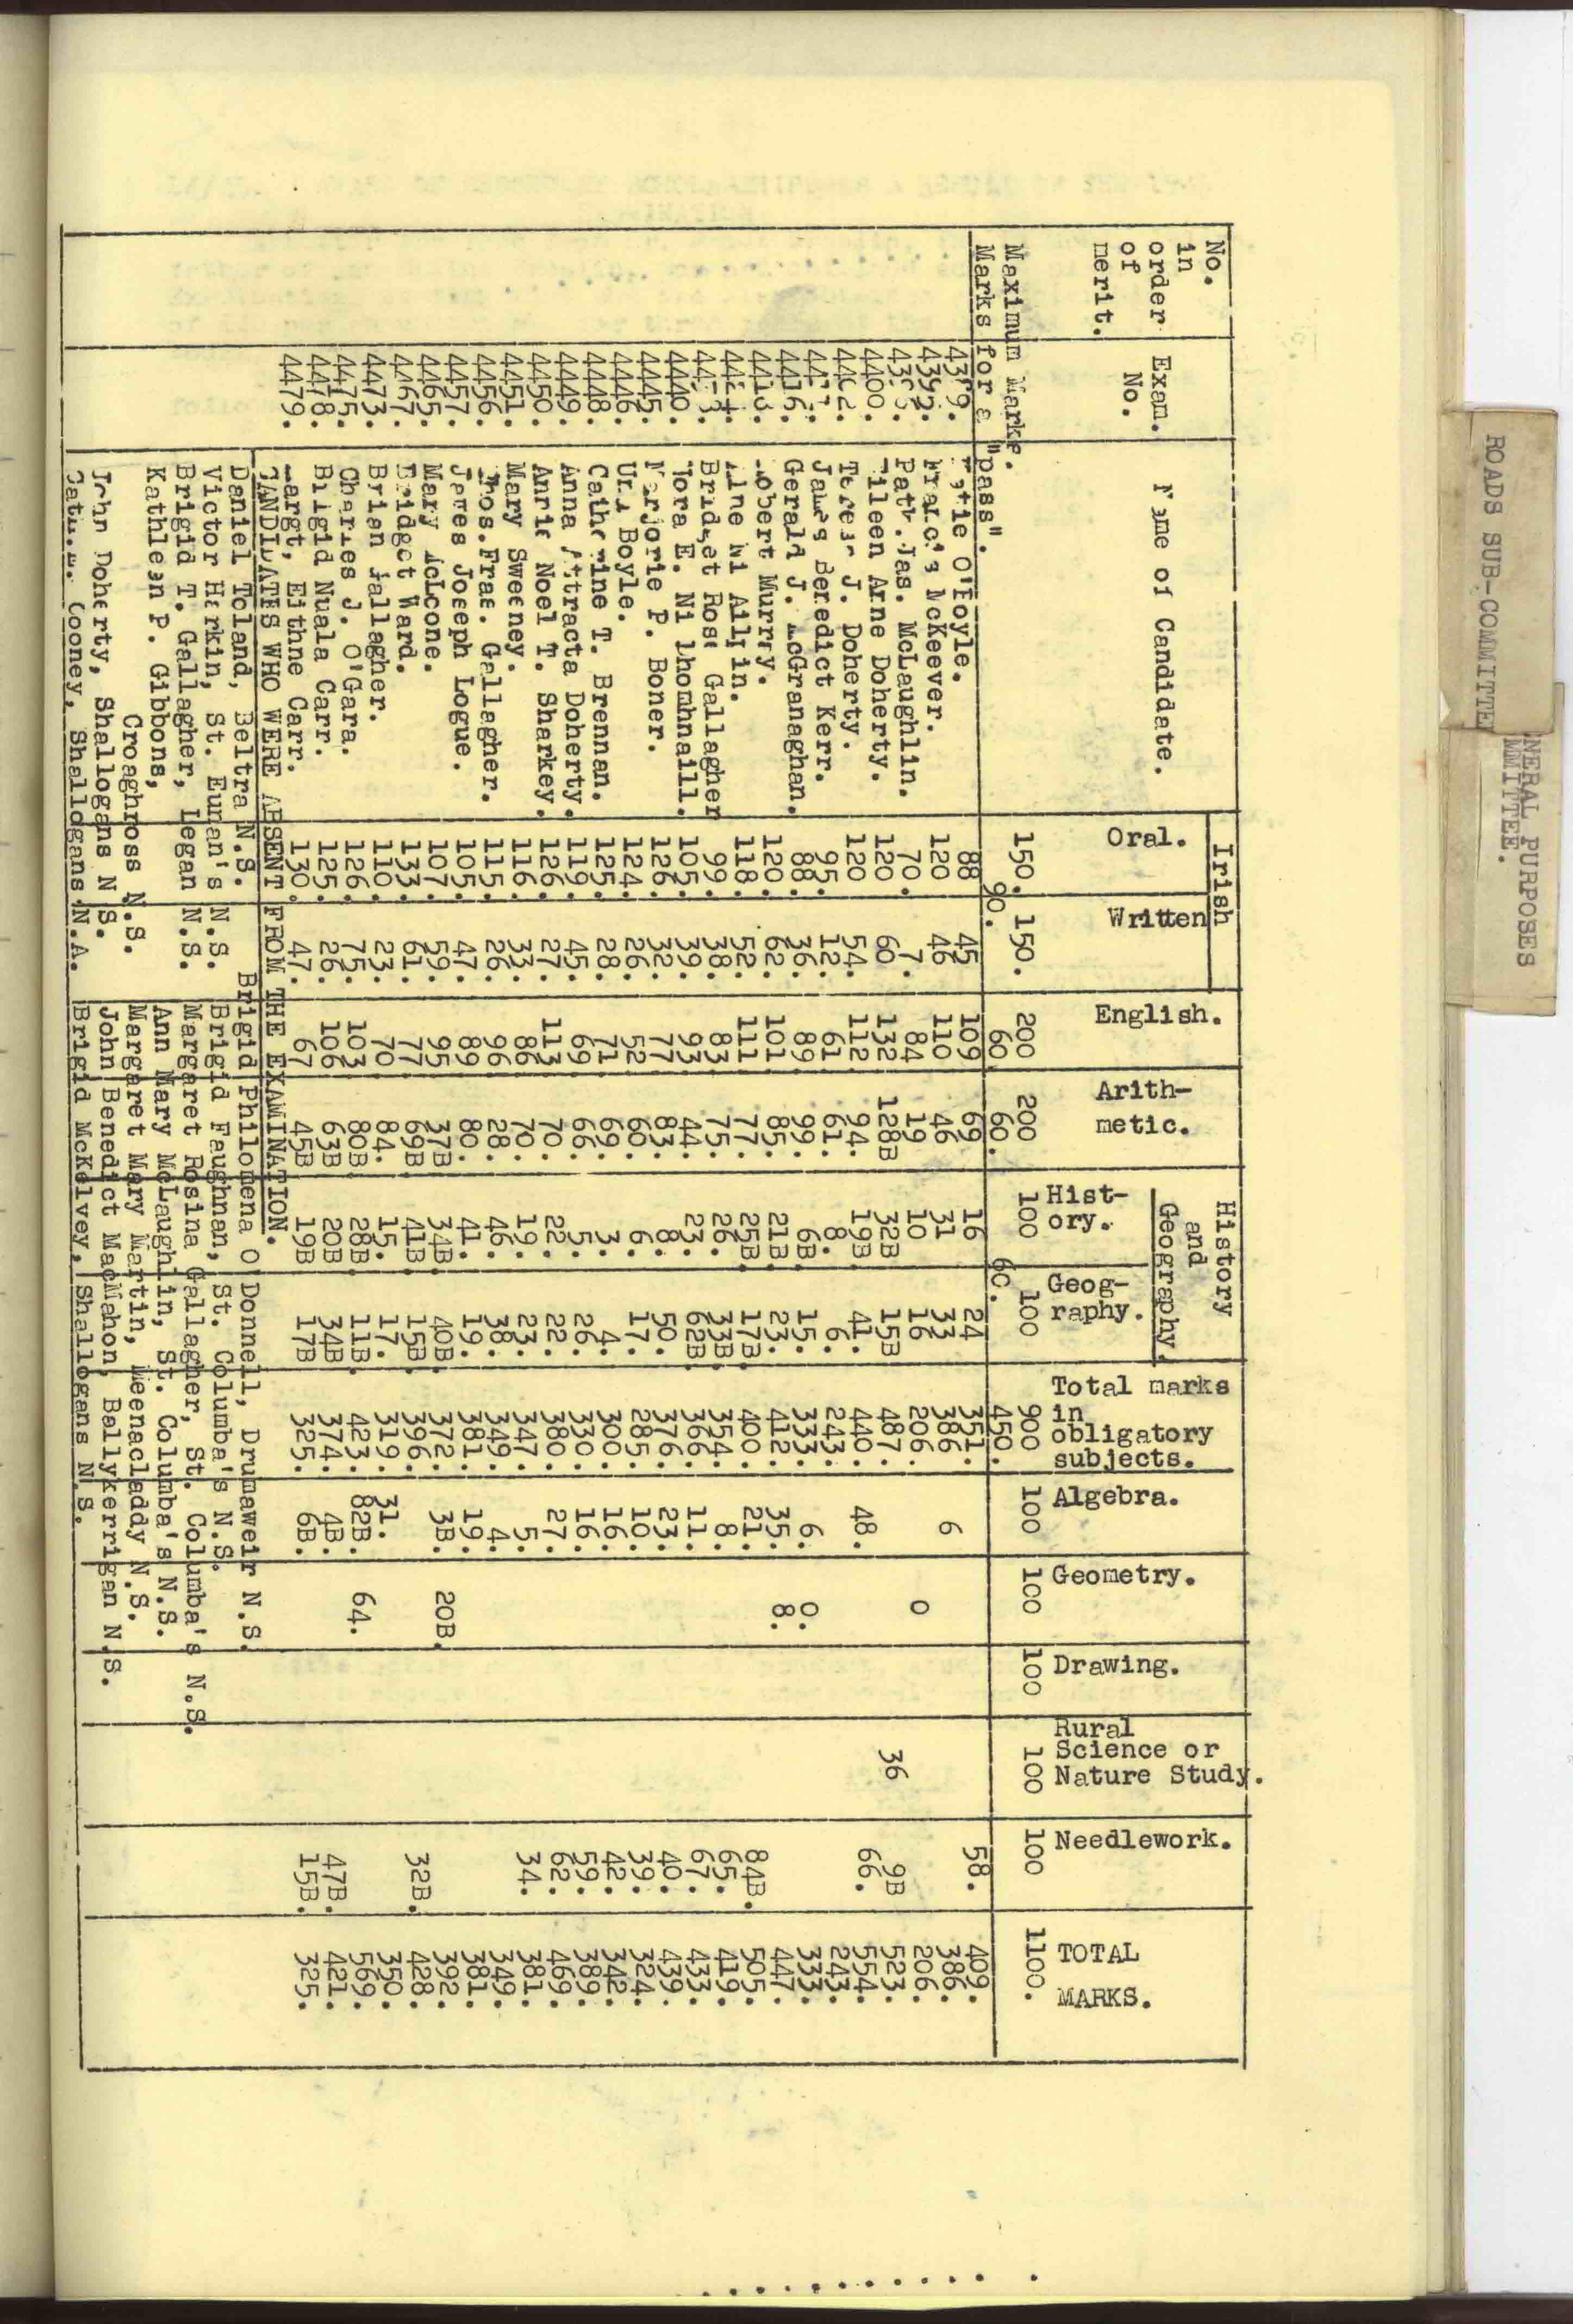 No. in order of merit. Exam. No. Name of Candidate. Irish Oral. Written English. Arith-metic. History and Geography. Hist-ory. Geog-raphy. Total marks in obligatory subjects. Algebra. Geometry. Drawing. Rural Science or Nature Study. Needlework. TOTAL MARKS.
Maximum Marks. 150. 150. 200 200 100 100 900 100 100 100 100 100 1100.
Marks for a "pass". 90. 60 60. 60. 450.
4389. O'Boyle. 88 45 109 69. 16 24 351. 58. 409.
4392. Francis McKeever. 120 46 110 46 31 33 386. 6 386.
Patk. Jas. McLaughlin. 70. 7. 84 19 10 16 206. 0 206.
4400. Eileen Anne Doherty. 120 60 132 128B 32B 15B 487. 36 9B 523.
4402. Teresa J. Doherty. 120 54. 112 94. 19B 41. 440. 48. 66. 554.
James Benedict Kerr. 95. 12. 61 61. 8. 6 243. 243.
4416. Gerald J. McGranaghan. 88. 36. 89 99. 6B. 15. 333. 6 0. 333.
4418. Robert Murry. 120. 62. 101 85. 21B 23. 412. 35. 8. 447.
Aine Ni Aillin. 118. 52. 111 77. 25B. 17B. 400. 21. 84B. 505.
Bridget Rose Gallagher 99. 38. 83 75. 26. 33B. 354. 8. 65. 419.
4440. Nora E. Ni Dhomhnaill. 105. 39. 93 44. 23. 62B. 366. 11. 67. 433.
4445. Marjorie P. Boner. 126. 32. 77 83. 8. 50. 376. 23. 40. 439.
4446. Una Boyle. 124. 26. 52 60. 6 17. 285. 10. 39. 324.
4448. Catherine T. Brennan. 125. 28. 71 69. 3 4. 300. 16. 42. 342.
4449. Anna Attracta Doherty. 119. 45. 69 66. 5. 26. 330. 16. 59. 389.
4450. Annie Noel T. Sharkey. 126. 27. 113 70. 22. 22. 380. 27. 62. 469.
4451. Mary Sweeney. 116. 33. 86 70. 19. 23. 347. 5. 34. 381.
4456. Thos.Fras. Gallagher. 115. 26. 96 28. 46. 38. 349. 4. 349.
4457. James Joseph Logue. 105. 47. 89 80. 41. 19. 381. 19. 381.
4465. Mary McLoone. 107. 59. 95 37B 34B 40B. 372. 3B. 20B. 392.
4467. Bridget Ward. 133. 61 77 69B 41B. 15B. 396. 32B. 428.
4473. Brian Gallagher. 110. 23. 70 84. 15. 17. 319. 31. 350.
4475. Charles J. O'Gara. 126. 75. 103 80B 28B. 11B. 423. 82B. 64. 569.
4478. Brigid Nuala Carr. 125. 26. 106 63B 20B 34B 374. 4B. 47B. 421.
4479. Margt, Eithne Carr. 130. 47. 67 45B 19B 17B 325. 6B. 15B. 325.
CANDIDATES WHO WERE ABSENT FROM THE EXAMINATION.
Daniel Toland, Beltra N.S. Brigid Philomena O'Donnell, Drumaweir N.S.
Victor Harkin, St. Eunan's N.S. Brigid Faughnan, St. Columba's N.S.
Brigid T. Gallagher, Legan N.S. Margaret Rosina Gallagher, St. Columba's N.S.
Kathleen P. Gibbons, Ann Mary McLaughlin, St. Columba's N.S.
Croaghross N.S. Margaret Mary Martin, Meenacladdy N.S.
John Doherty, Shallogans N S. John Benedict MacMahon, Ballykerrigan N.S.
Cooney, Shallogans N.A. Brigid McKelvey, Shallogans N.S.
ROADS SUB-COMMITTEE
NERAL PURPOSES
MMITTEE.